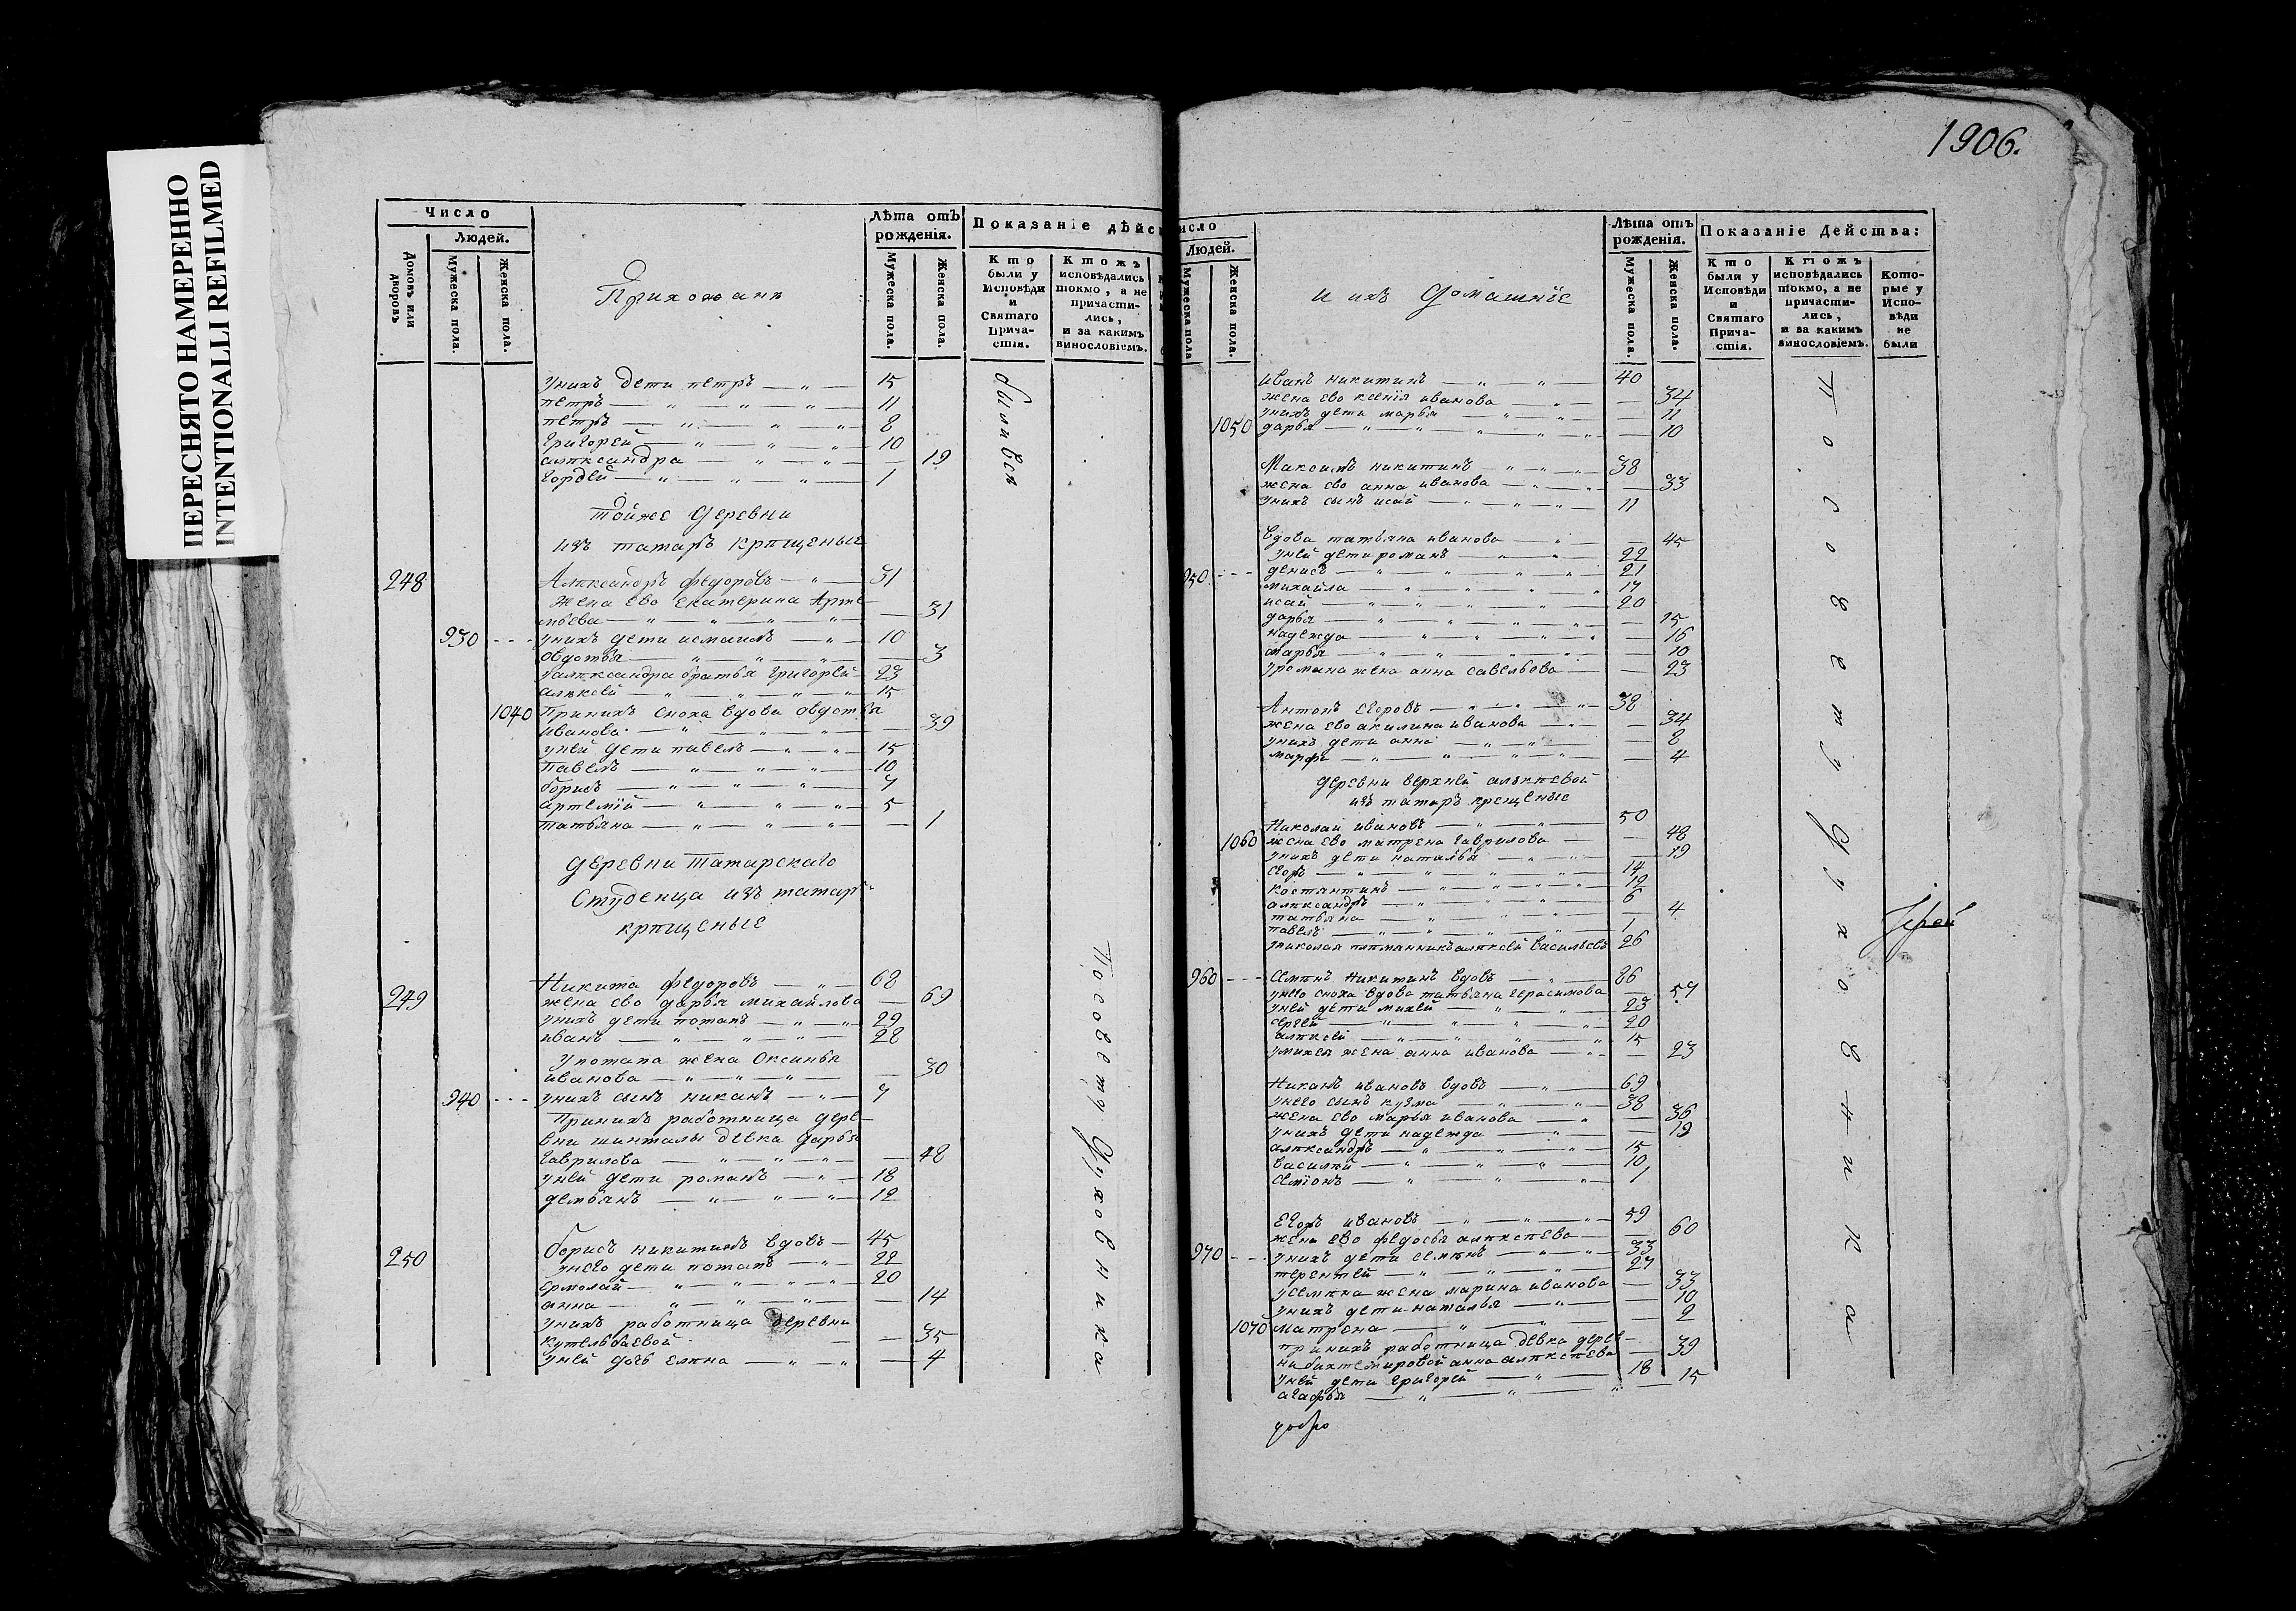 ПЕРЕСНЯТО НАМЕРЕННО
INTENTIONALLI REFILMED
Число
Людей.
Домовъ или дворовъ
Мужеска пола.
Женска пола.
Прихожанъ
Лѣта отъ рожденія.
Мужеска пола.
Женска пола.
Показаніе дѣйс
Кто были у Исповѣди и Святаго Причастія.
Ктожъ исповѣдались токмо, а не причастились, и за какимъ винословіемъ.
унихъ дети петръ — „ — 15
петръ — „ — „ — „ — 11
петръ — „ — „ — „ 8
григорей — „ — „ — 10
алѣксандра — „ — „ — 19
гордей — „ — „ — 1
были всѣ
Тойже деревни
изъ татаръ крѣщеные
248 Алѣксандръ федоровъ — „ — 31
жена ево екатерина Арте-
мьева — „ — „ — „ — 31
930 - - - унихъ дети исмаилъ — „ — 10
овдотья — „ — „ — „ — 3
уалѣксандра братья григорей — 23
алѣксей — „ — „ — „ — 15
1040 Принихъ сноха вдова овдотья
иванова — „ — „ — „ — 39
уней дети павелъ — „ — „ — 15
Павелъ — „ — „ — „ — 10
борисъ — „ — „ — „ — 7
артемій — „ — „ — „ — 5
татьяна — „ — „ — „ — 1
деревни Татарскаго
Студенца изъ татаръ
крѣщеные
249 Никита федоровъ — „ — 68
жена ево дарья михайлова — 69
унихъ дети потапъ — „ — „ — 29
иванъ — „ — „ — „ — 28
употапа жена Оксинья
иванова — „ — „ — „ — 30
940 - - - унихъ сынъ никанъ — „ — 7
Принихъ работница дере-
вни шинталы девка дарья
гаврилова — „ — „ — „ — 48
уней дети романъ — „ — 18
демьянъ — „ — „ — „ — 12
250 борисъ никитинъ вдовъ — 45
унего дети потапъ — „ — 22
ермолай — „ — „ — „ — 20
анна — „ — „ — „ — 14
унихъ работница деревни
кутельбаевой — — 35
уней дочь елѣна — „ — „ — 4
По совету духовника
1906.
исло
Людей.
Мужеска пола
Женска пола.
и ихъ домашніе
Лѣта отъ рожденія.
Мужеска пола.
Женска пола.
Показаніе Действа:
Кто были у Исповѣди и Святаго Причастія.
Ктожъ исповѣдались токмо, а не причастились, и за какимъ винословіемъ.
Которые у Исповѣди не были
иванъ никитинъ — „ — „ — 40
жена ево ксенія иванова — „ — 34
унихъ дети марья — „ — „ — 11
1050 дарья — „ — „ — „ — „ — 10
Максимъ никитинъ — „ — „ — 38
жена ево анна иванова — „ — „ — 33
унихъ сынъ исай — „ — „ — 11
вдова татьяна иванова — „ — 45
уней дети романъ — „ — „ — 22
950 - - - денисъ — „ — „ — „ — 21
михайла — „ — „ — „ 17
исай — „ — „ — „ — 20
дарья — „ — „ — „ — 25
надежда — „ — „ — „ — 16
марья — „ — „ — „ — 10
уромана жена анна савельева — 23
Антонъ егоровъ — „ — „ — „ — 38
жена ево акилина иванова — „ — 34
унихъ дети анна — „ — „ — 8
марфа — „ — „ — „ — 4
деревни верхней алькѣевой
изъ татаръ крещеные
Николай ивановъ — „ — „ — 50
1060 жена ево матрена гаврилова — 48
унихъ дети наталья — „ — „ — 19
егоръ — „ — „ — „ — 14
костянтинъ — „ — „ — „ — 12
алѣксандръ — „ — „ — „ — 6
татьяна — „ — „ — „ — 4
павелъ — „ — „ — „ — 1
униколая плѣмянникъ алѣксей васильевъ 26
960 - - - Семѣнъ никитинъ вдовъ — „ — 86
унего сноха вдова татьяна герасимова — 57
уней дети михей — „ — „ — 23
сергей — „ — „ — „ — 20
алѣксей — „ — „ — „ — 15
умихея жена анна иванова — „ — 23
Никанъ ивановъ вдовъ — „ — 69
унего сынъ кузма — „ — „ — 38
жена ево марья иванова — „ — 36
унихъ дети надежда — „ — 19
алѣксандръ — „ — „ — „ — 15
василѣй — „ — „ — „ — 10
семіонъ — „ — „ — „ — 1
Егоръ ивановъ — „ — „ — 59
жена ево федосья алѣксѣева — 60
970 - - - унихъ дети семѣнъ — „ — „ — 33
терентей — „ — „ — „ — 27
усемѣна жена марина иванова — 33
унихъ дети наталья — „ — 10
1070 матрена — „ — „ — 2
принихъ работница девка дерев-
ни бихтемировой анна алѣксѣева — 39
уней дети григорей — „ — 18
агафья — „ — „ — „ — 15
По совету духовника
Іерей